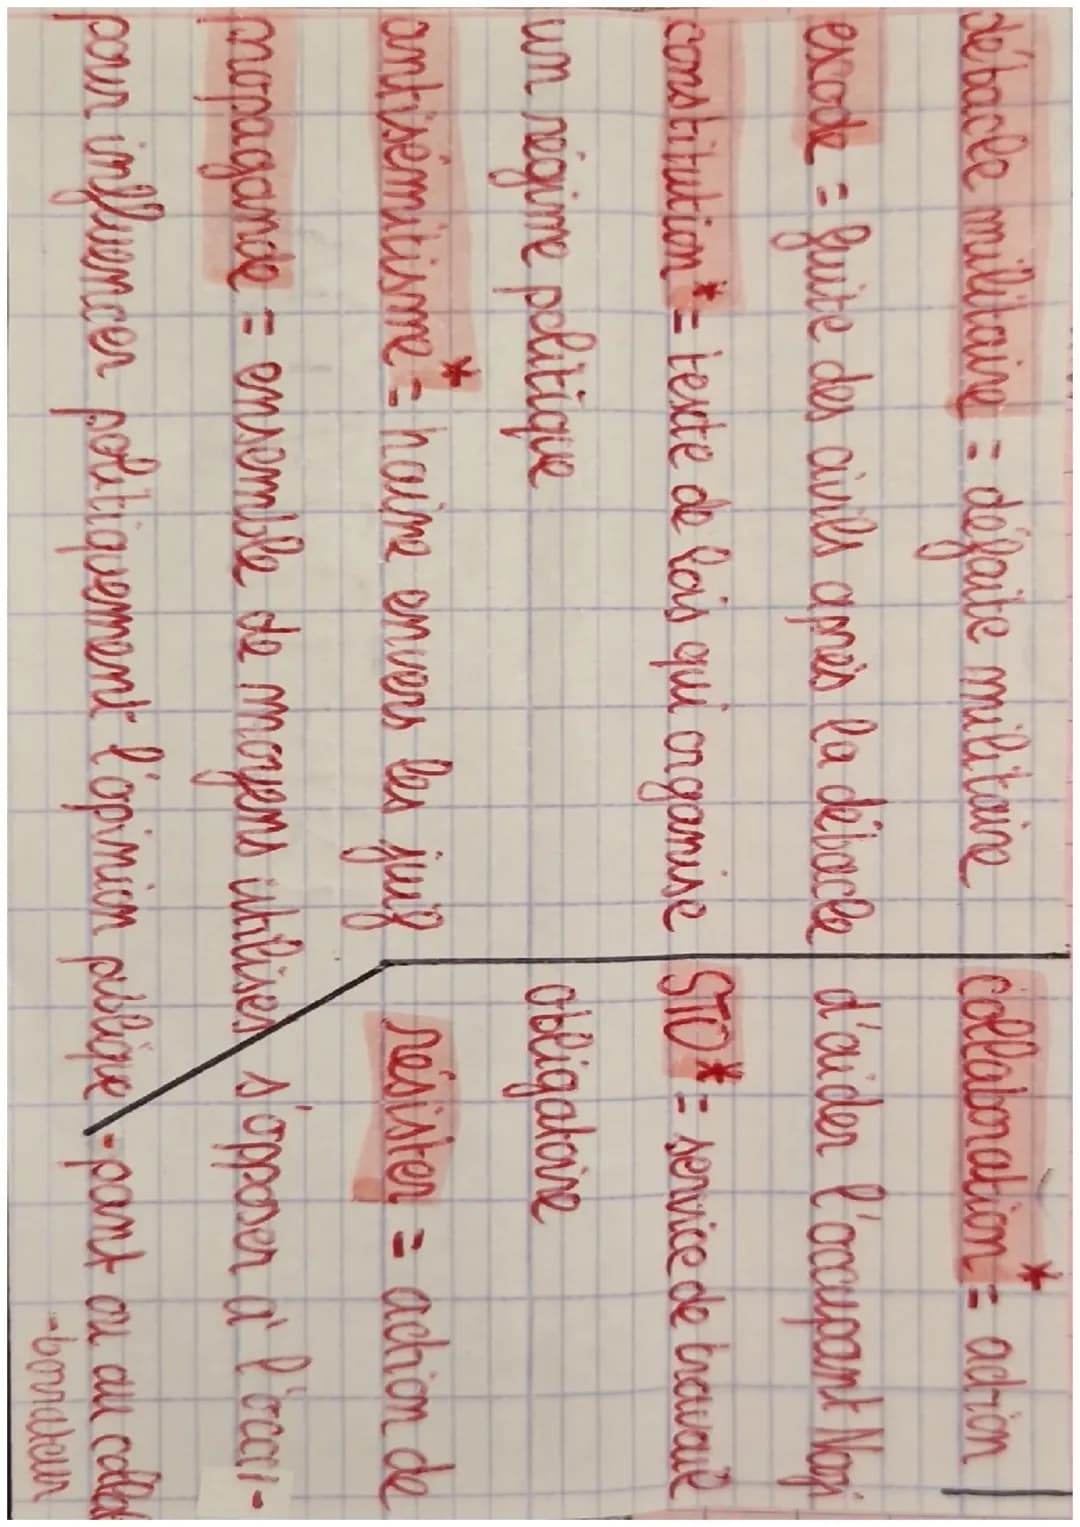 débacle militaire = défaite militaire
exode = fuite des civils après la débacle
constitution* = texte de lois qui organise
un régime politique
antisémitisme* = haine envers les juif
propagande = ensemble de moyens utilises
pour influencer politiquement l'opinion publique
collaboration* = action
d'aider l'occupant Nazi
STO* = service de travail
obligatoire
résister = action de
s'opposer à l'occu-
-pant ou au collab
-borateur